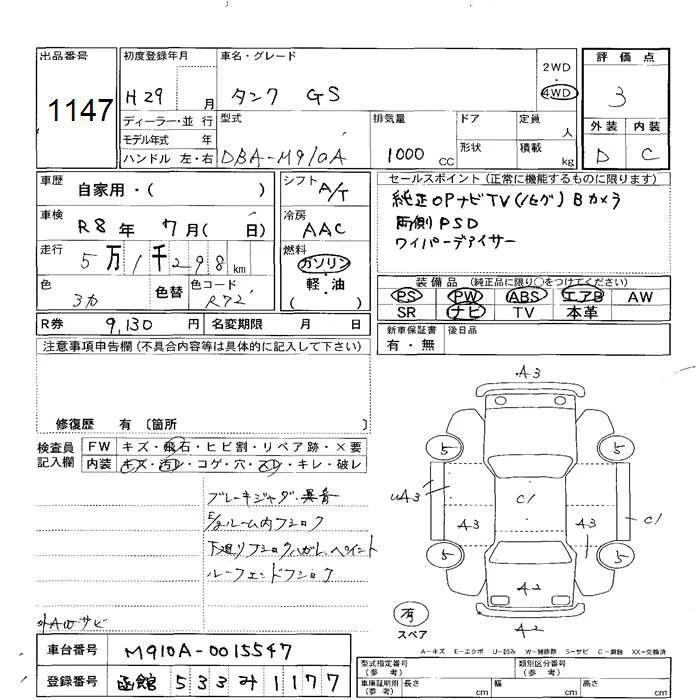 出品番号
1147
初度登録年月
H29 月
車名・グレード
タンク GS
2WD
・
4WD
評価点
3
外装 内装
D C
ディーラー・並 行
モデル年式 年
ハンドル 左・右
型式
DBA-M910A
排気量
1000 CC
ドア
形状
定員
人
積載
kg
車歴
自家用・( )
シフト
A/T
車検
R8年 7月( 日)
冷房
AAC
走行
5万1千298km
燃料
ガソリン
・
軽・油
( )
色
色替
色コード
R72
R券
9,130 円
名変期限 月 日
セールスポイント(正常に機能するものに限ります)
純正OPナビTV(ﾉｾｸﾞ) Bカメラ
両側PSD
ワイパーデアイサー
装備品 (純正品に限り○をつけてください)
PS PW ABS エアB AW
SR ナビ TV 本革
新車保証書
有・無
後日品
注意事項申告欄(不具合内容等は具体的に記入して下さい)
修復歴 有 〔箇所 〕
検査員
記入欄
FW キズ・飛石・ヒビ割・リペア跡・×要
内装 キズ・汚レ・コゲ・穴・スレ・キレ・破レ
ブレーキジャダ・異音
E/gルーム内フショク
下廻りフショクハガレ、ペイント
ルーフエンドフショク
外AWサビ
車台番号
M910A-0015547
登録番号
函館 533み1177
A3
5
5
uA3
C1
A3
A3
C1
5
5
A2
有
スペア
A2
A-キズ E-エクボ U-凹み W-補修跡 S-サビ C-腐蝕 XX-交換済
型式指定番号
(参考)
類別区分番号
(参考)
車庫証明用
(参考)
長さ
cm
幅
cm
高さ
cm